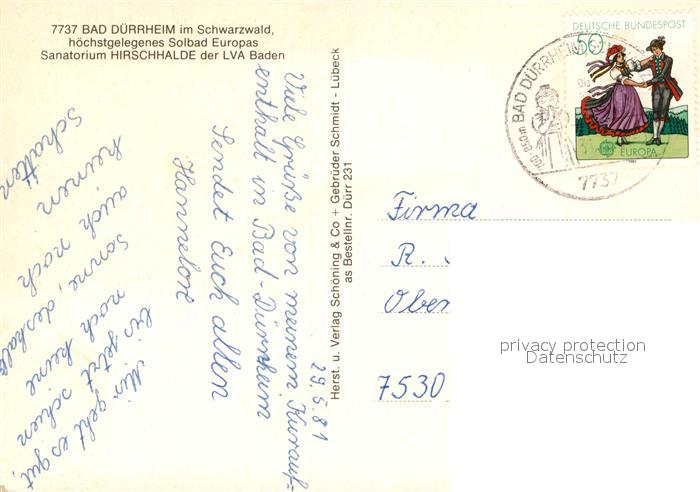 7737 BAD DÜRRHEIM im Schwarzwald,
höchstgelegenes Solbad Europas
Sanatorium HIRSCHHALDE der LVA Baden
29.5.81
Viele Grüße von meinem Kurauf-
enthalt in Bad-Dürnheim
Sendet Euch allen
Hannelore
Mir geht es gut,
bis jetzt schien
noch keine
Sonne, deshalb
auch noch
keinen
Schatten
Herst. u. Verlag Schöning & Co + Gebrüder Schmidt - Lübeck
as Bestellnr. Dürr 231
DEUTSCHE BUNDESPOST
50
EUROPA
700-850 m BAD DÜRRHEIM
7737
Firma
R.
Ober
7530
privacy protection
Datenschutz